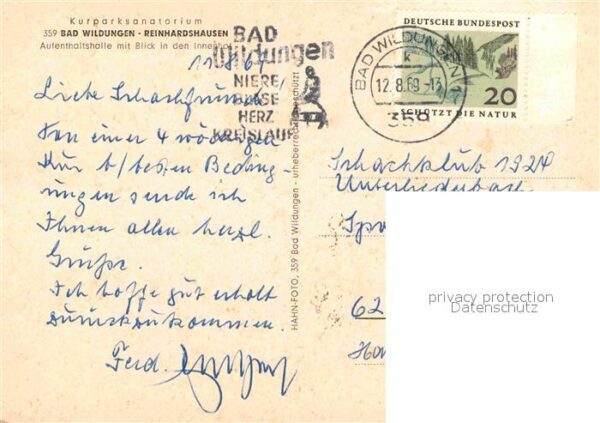 Kurparksanatorium
359 BAD WILDUNGEN - REINHARDSHAUSEN
Aufenthaltshalle mit Blick in den Innenhof
BAD
Wildungen
NIERE
BLASE
HERZ
KREISLAUF
BAD WILDUNGEN 1
k
12.8.69-13
359
DEUTSCHE BUNDESPOST
20
SCHÜTZT DIE NATUR
Liebe Schachfreunde
Von einer 4 wöchigen
Kur b/besten Beding-
ungen sende ich
Ihnen allen herzl.
Grüße.
Ich hoffe gut erholt
zurückzukommen.
Ferd.
HAHN-FOTO, 359 Bad Wildungen - urheberrechtl. geschützt
Schachklub 1924
Unterliederbach
62
privacy protection
Datenschutz